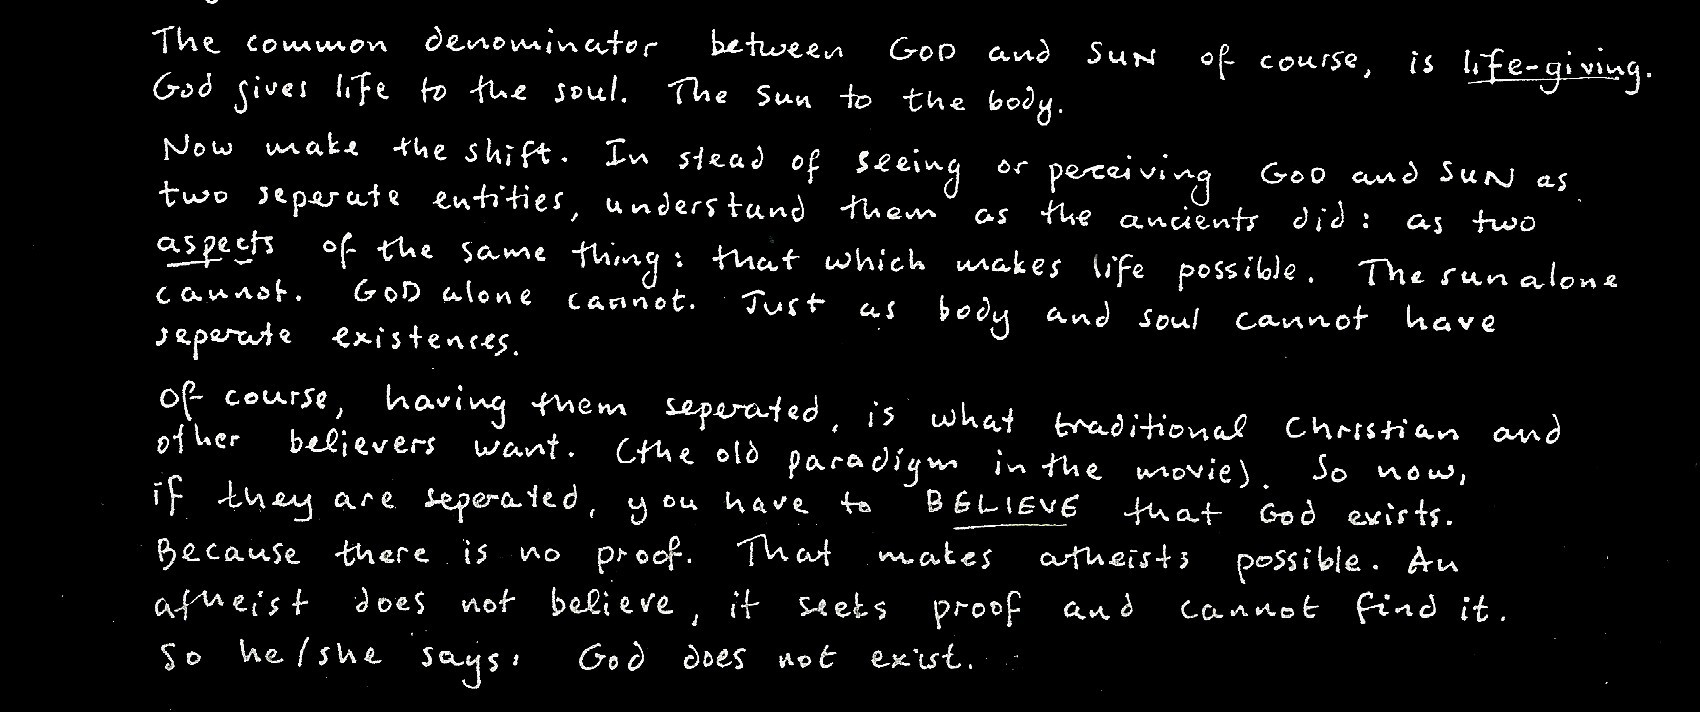 The common denominator between GOD and SUN of course, is life-giving.
God gives life to the soul. The Sun to the body.
Now make the shift. In stead of seeing or perceiving GOD and SUN as
two seperate entities, understand them as the ancients did: as two
aspects of the same thing: that which makes life possible. The sun alone
cannot. GOD alone cannot. Just as body and soul cannot have
seperate existences.
Of course, having them seperated, is what traditional Christian and
other believers want. (the old paradigm in the movie). So now,
if they are seperated, you have to BELIEVE that God exists.
Because there is no proof. That makes atheists possible. An
atheist does not believe, it seeks proof and cannot find it.
So he/she says: God does not exist.